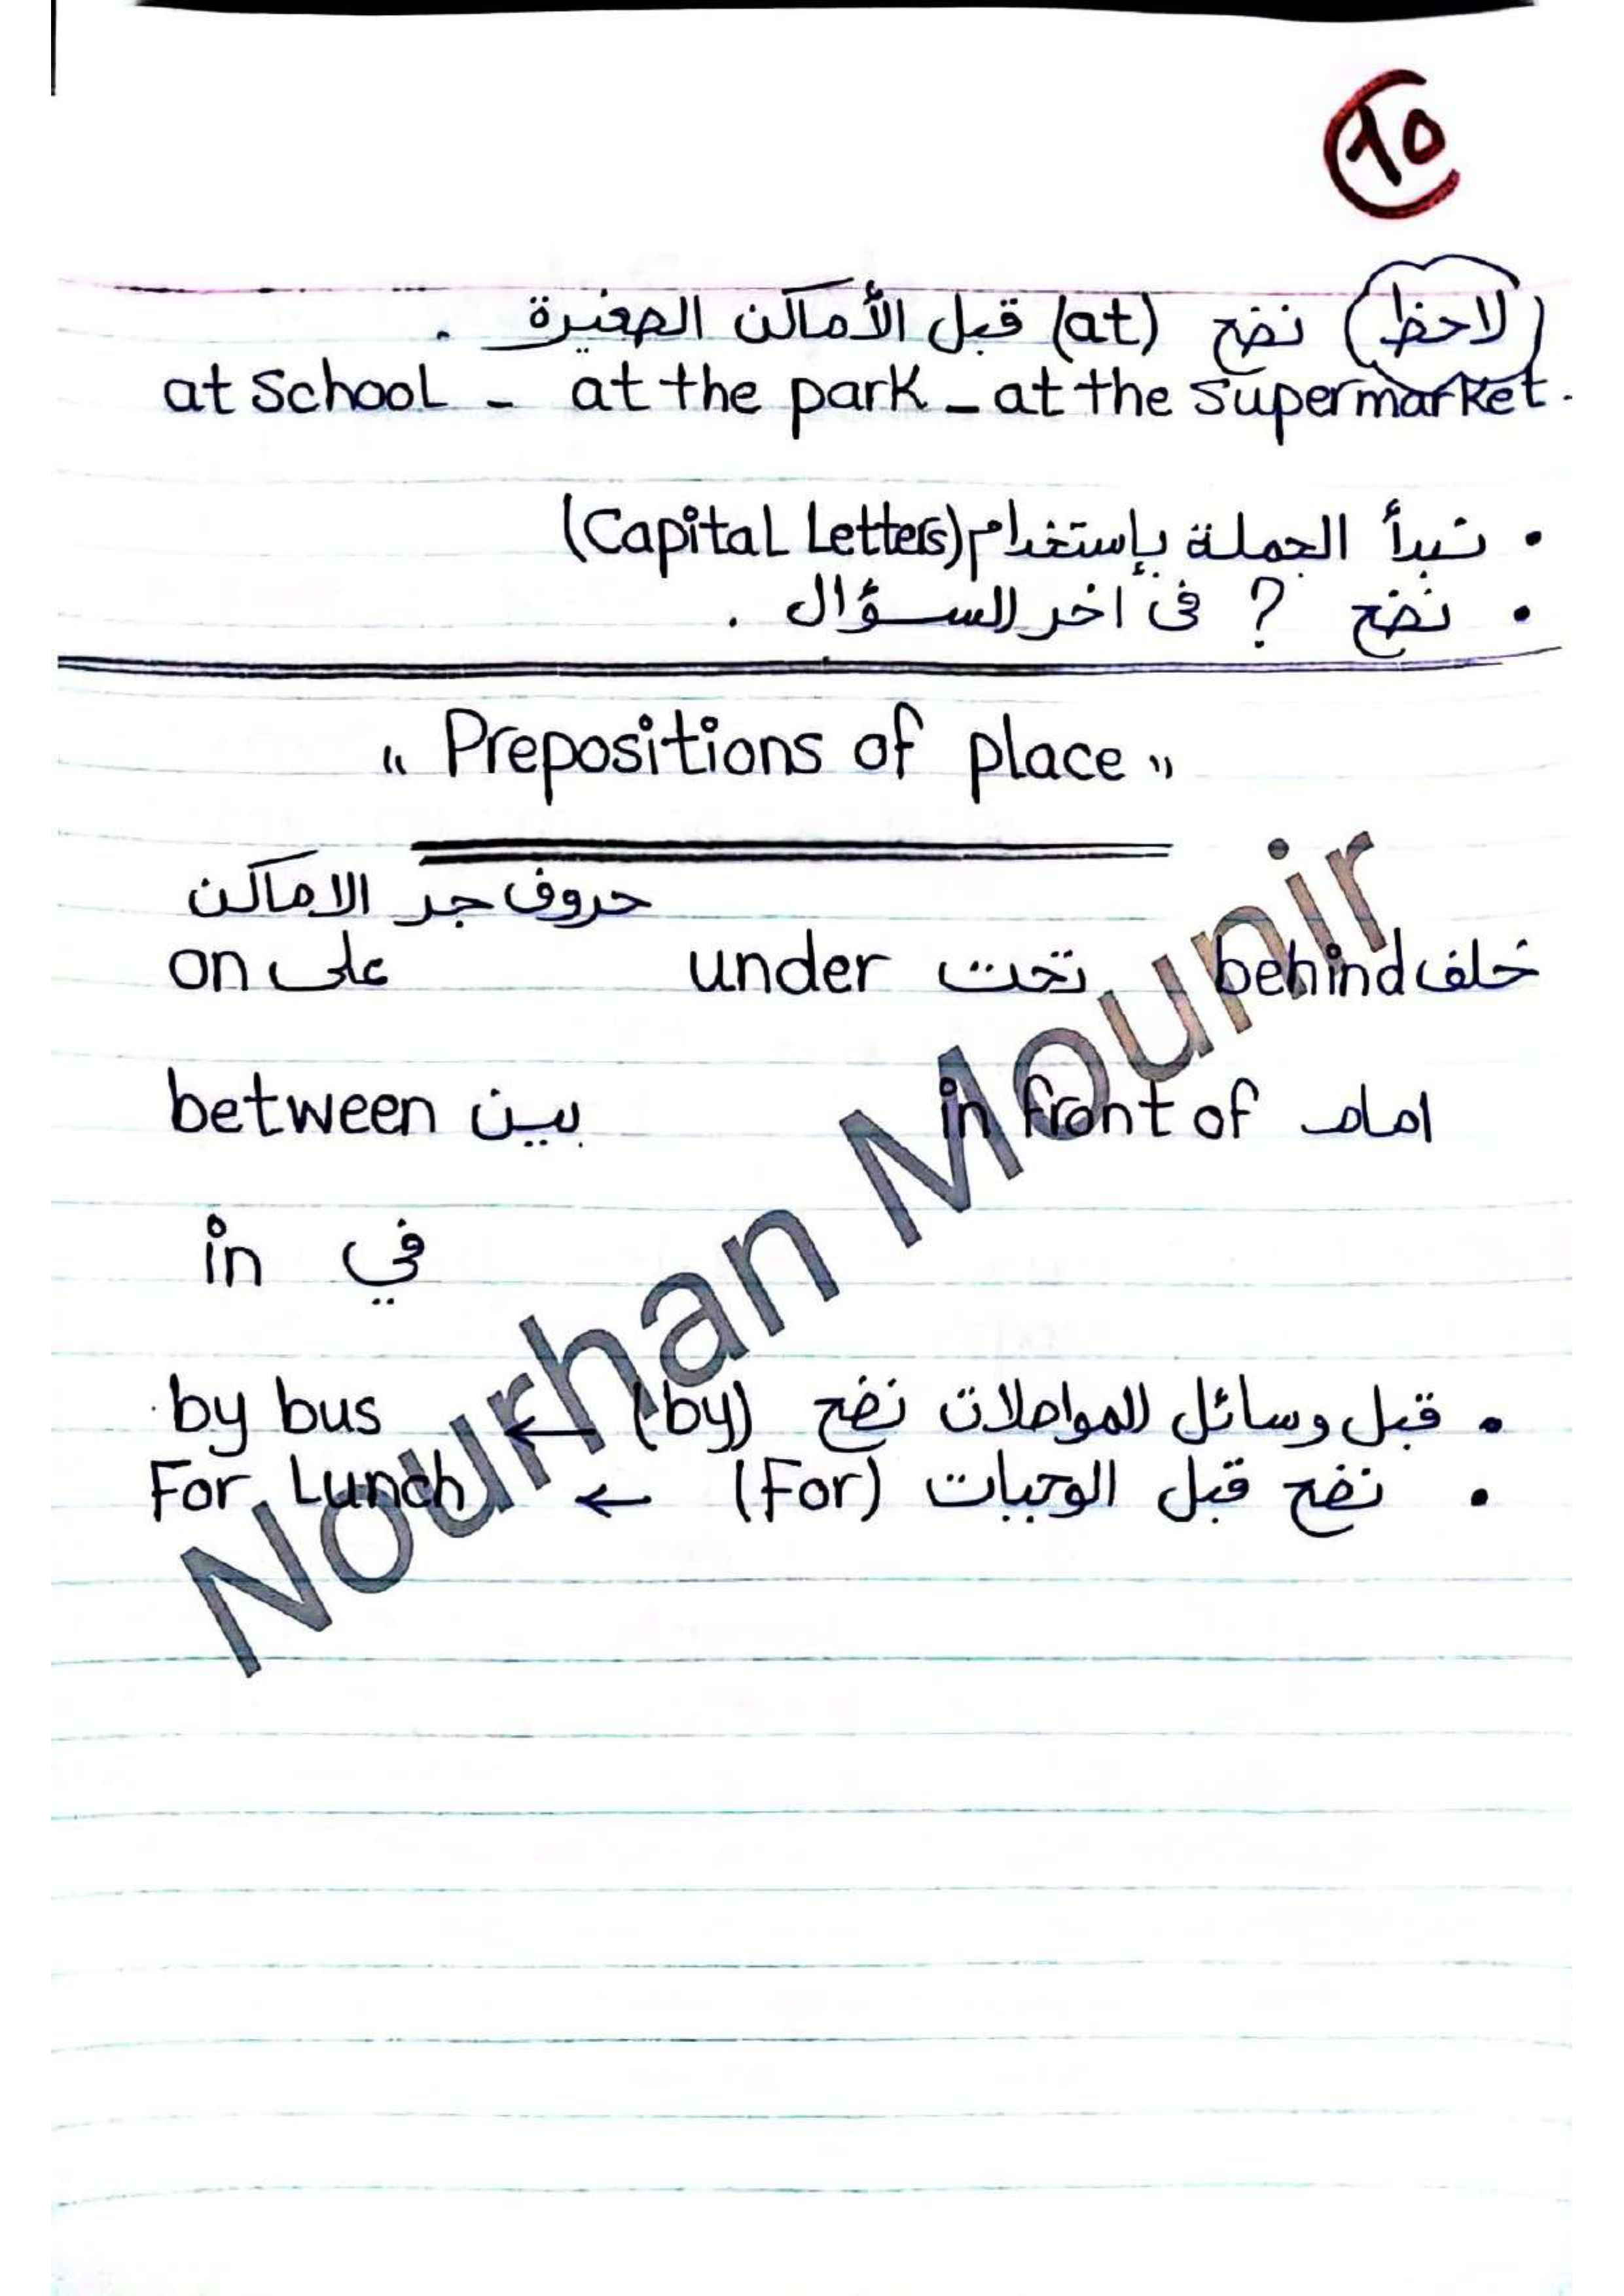 ١٥
(لاحظ) نضع (at) قبل الأماكن الصغيرة .
at School - at the park - at the Supermarket.
• نبدأ الجملة بإستخدام (Capital Letters)
• نضع ? فى أخر السؤال .
" Prepositions of place "
حروف جر الاماكن
on على under تحت behind خلف
between بين in front of امام
in في
• قبل وسائل المواصلات نضع (by) ← by bus
• نضع قبل الوجبات (For) ← For Lunch
Nourhan Mounir